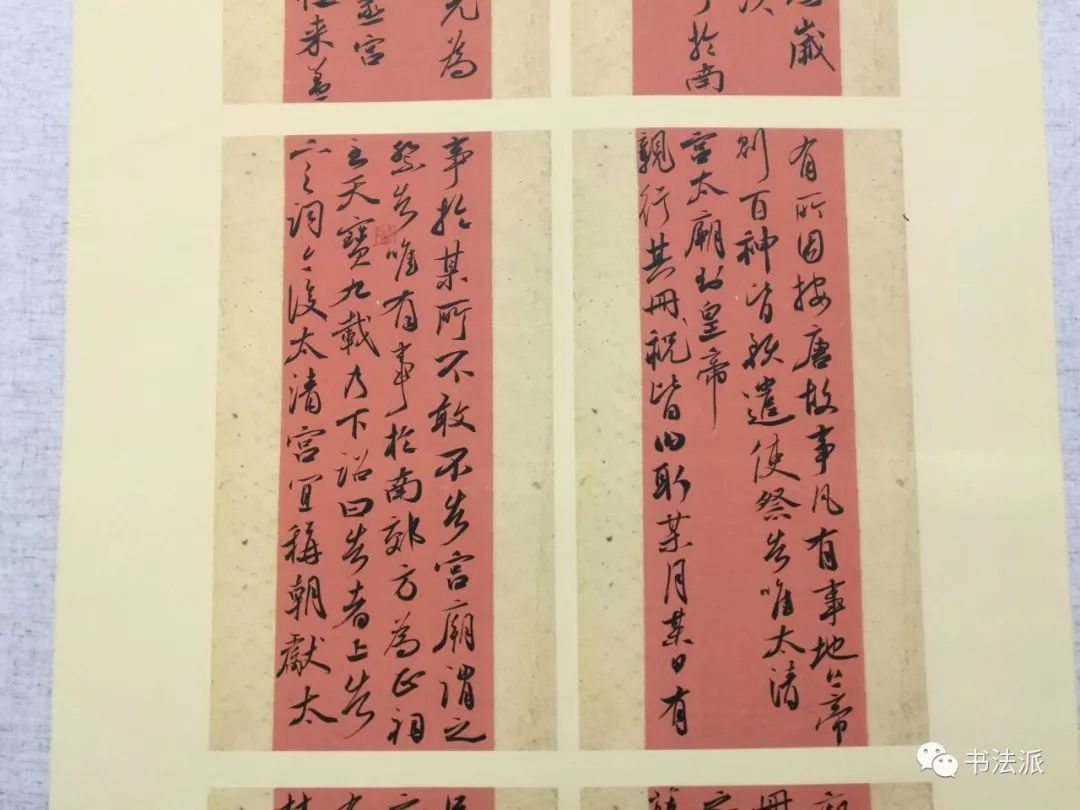 歲
次
於南
先為
靈宮
来蓋
有所因按唐故事凡有事地上帝
則百神皆預遣使祭告唯太清
宮太廟則皇帝
親行其冊祝皆曰取某月某日有
事於某所不敢不告宮廟謂之
祭告唯有事於南郊方為正祠
至天寶九載乃下詔曰告者上告
下之詞今後太清宮宜稱朝獻太
书法派